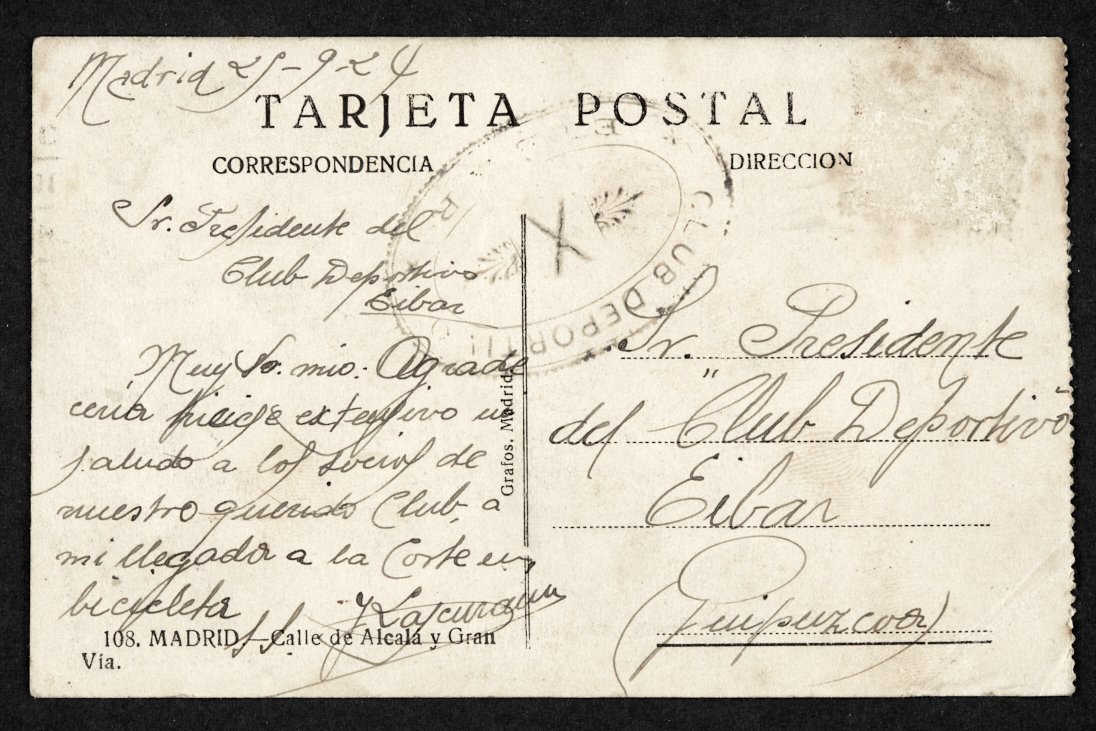 Madrid 25-9-24
TARJETA POSTAL
CORRESPONDENCIA
DIRECCION
Sr. Presidente del
Club Deportivo
Eibar
Muy Sr. mio: Agrade
ceria hiciese extensivo un
saludo a los socios de
nuestro querido Club, a
mi llegada a la Corte en
bicicleta
S. S. Y Lascurain
108. MADRID.—Calle de Alcalá y Gran
Vía.
Grafos. Madrid
CLUB DEPORTI
X
Sr. Presidente
del "Club Deportivo"
Eibar
(Guipuzcoa)